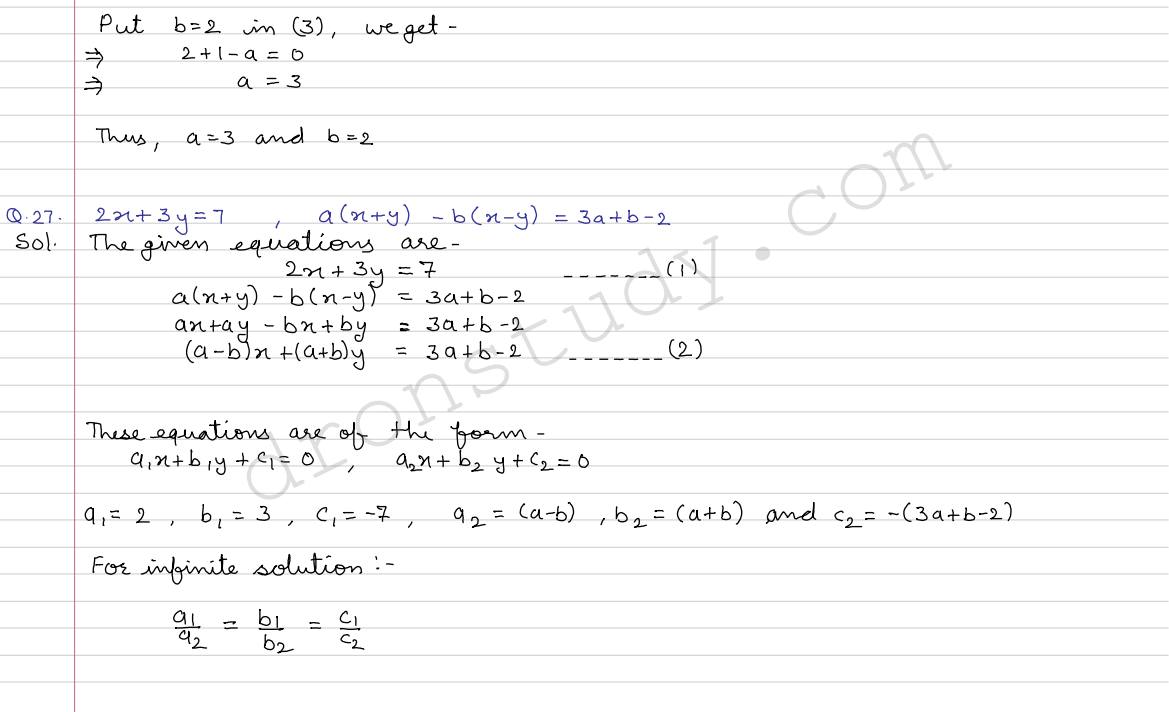 Put b=2 in (3), we get -
⇒ 2+1-a = 0
⇒ a = 3
Thus, a=3 and b=2
Q.27. 2x+3y=7 , a(x+y) -b(x-y) = 3a+b-2
Sol. The given equations are-
2x+3y = 7 -------(1)
a(x+y) -b(x-y) = 3a+b-2
ax+ay - bx+by = 3a+b-2
(a-b)x+(a+b)y = 3a+b-2 -------(2)
These equations are of the form -
a₁x+b₁y+c₁=0 , a₂x+b₂y+c₂=0
a₁= 2 , b₁ = 3 , c₁=-7 , a₂= (a-b) , b₂= (a+b) and c₂= -(3a+b-2)
For infinite solution :-
a₁/a₂ = b₁/b₂ = c₁/c₂
dronstudy.com